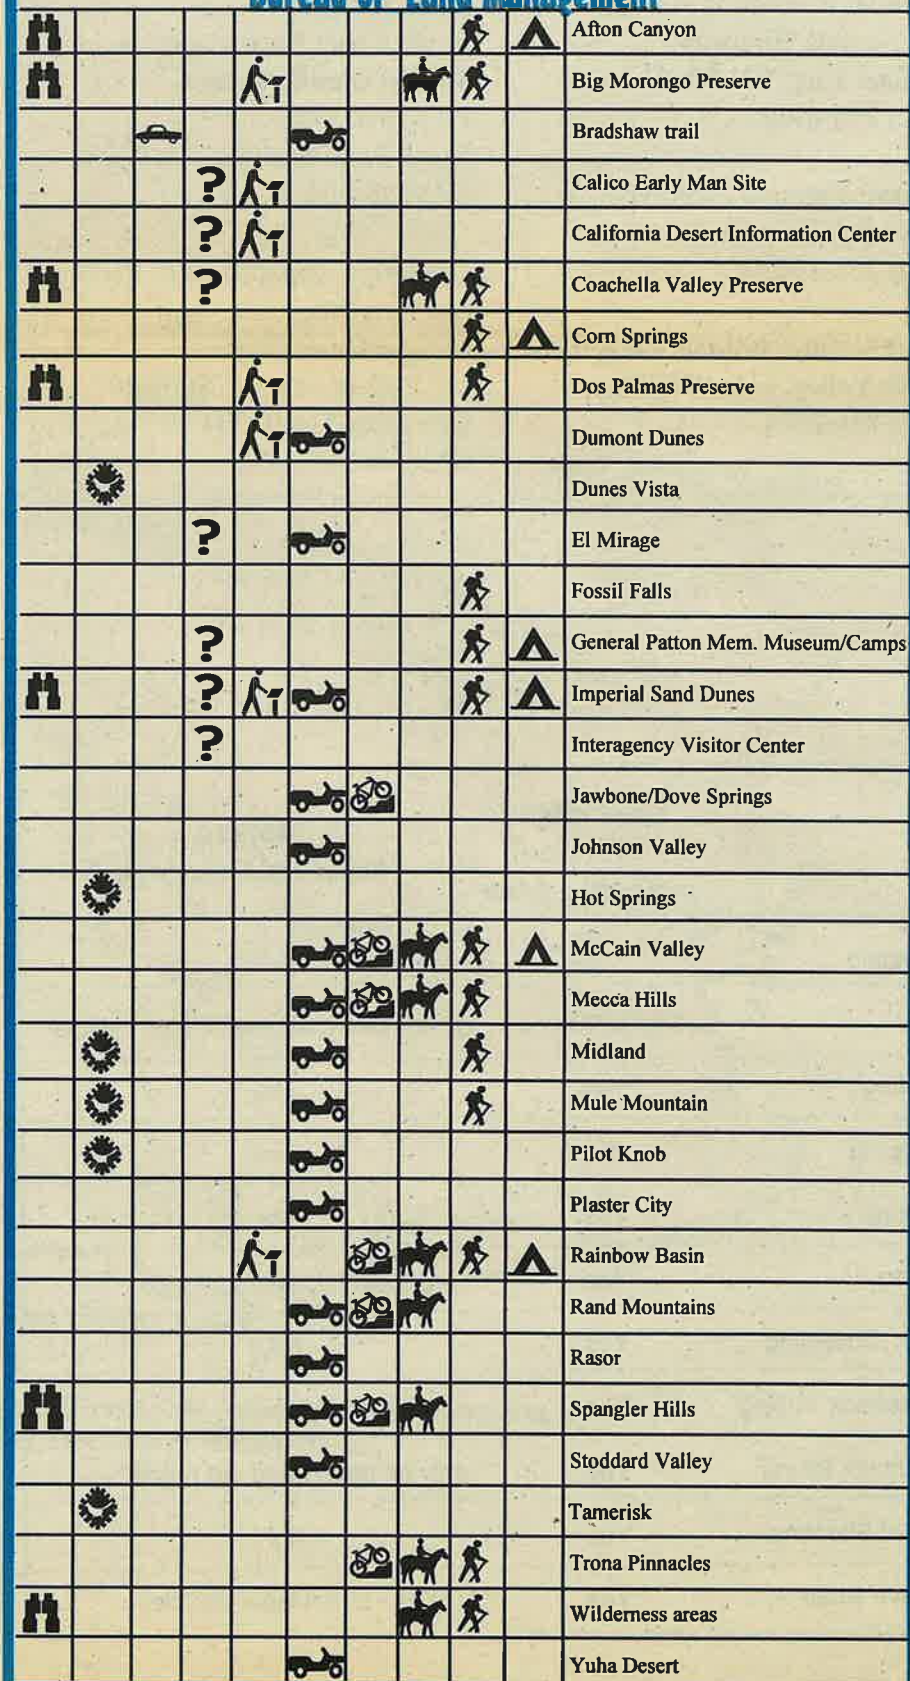 Bureau of Land Management
Afton Canyon
Big Morongo Preserve
Bradshaw trail
? Calico Early Man Site
? California Desert Information Center
? Coachella Valley Preserve
Corn Springs
Dos Palmas Preserve
Dumont Dunes
Dunes Vista
? El Mirage
Fossil Falls
? General Patton Mem. Museum/Camps
? Imperial Sand Dunes
? Interagency Visitor Center
Jawbone/Dove Springs
Johnson Valley
Hot Springs
McCain Valley
Mecca Hills
Midland
Mule Mountain
Pilot Knob
Plaster City
Rainbow Basin
Rand Mountains
Rasor
Spangler Hills
Stoddard Valley
Tamerisk
Trona Pinnacles
Wilderness areas
Yuha Desert